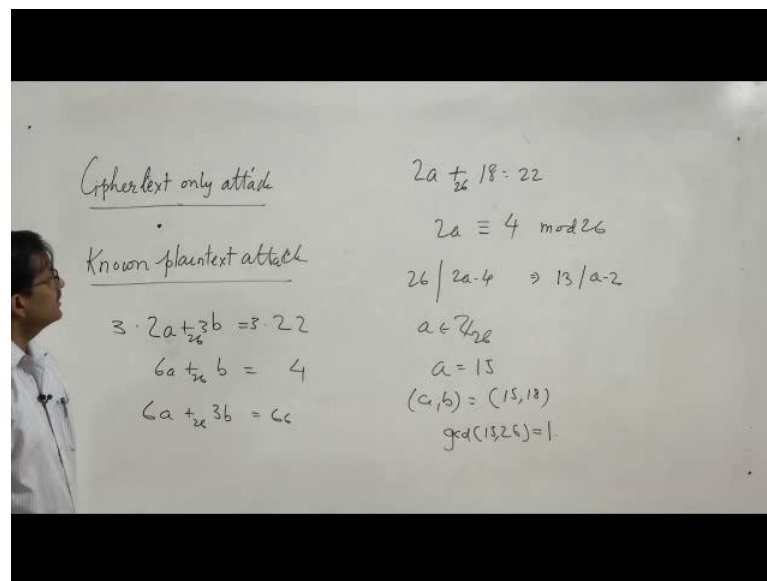 Ciphertext only attack
Known plaintext attack
3 · 2a +₂₆ 3b = 3 · 22
6a +₂₆ b = 4
6a +₂₆ 3b = 66
2a +₂₆ 18 = 22
2a ≡ 4 mod 26
26 | 2a-4 ⇒ 13 / a-2
a ∈ ℤ₂₆
a = 15
(a,b) = (15,18)
gcd(15,26)=1.